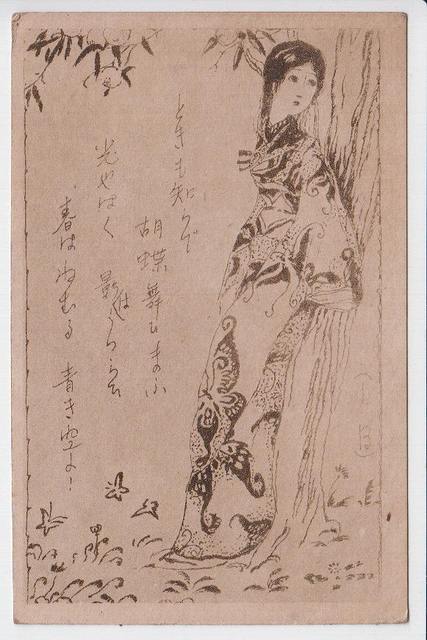 ときも知らで
胡蝶舞ひまふ
光やはく 影
春はねむる 青き空よ!